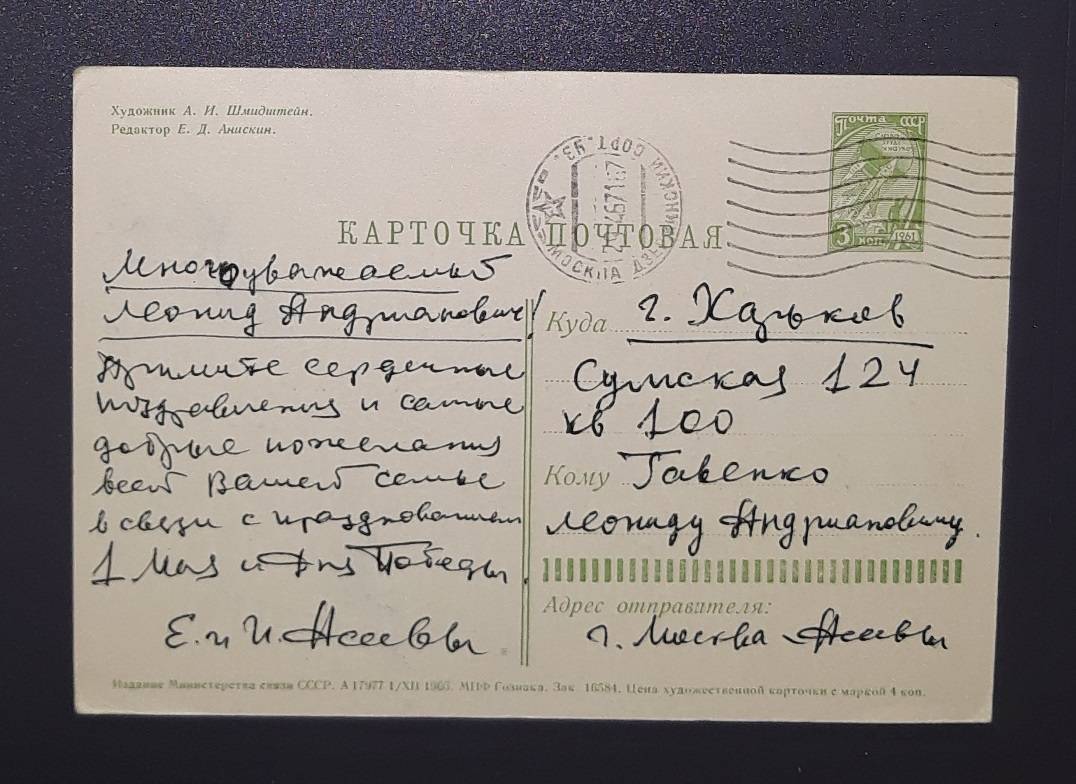 Художник А. И. Шмидштейн.
Редактор Е. Д. Анискин.
Почта СССР
3 коп.
1961
МОСКВА ДЗЕРЖИНСКИЙ СОРТ. УЗ.
КАРТОЧКА ПОЧТОВАЯ
Многоуважаемый
Леонид Андрианович!
Примите сердечные
поздравления и самые
добрые пожелания
всей Вашей семье
в связи с празднованием
1 Мая и Дня Победы.
Е. и И. Асеевы
Куда г. Харьков
Сумская 124
кв 100
Кому Гавенко
Леониду Андриановичу.
Адрес отправителя:
г. Москва Асеевы
Издание Министерства связи СССР. А 17977 1/XII 1966. МПФ Гознака. Зак. 16584. Цена художественной карточки с маркой 4 коп.